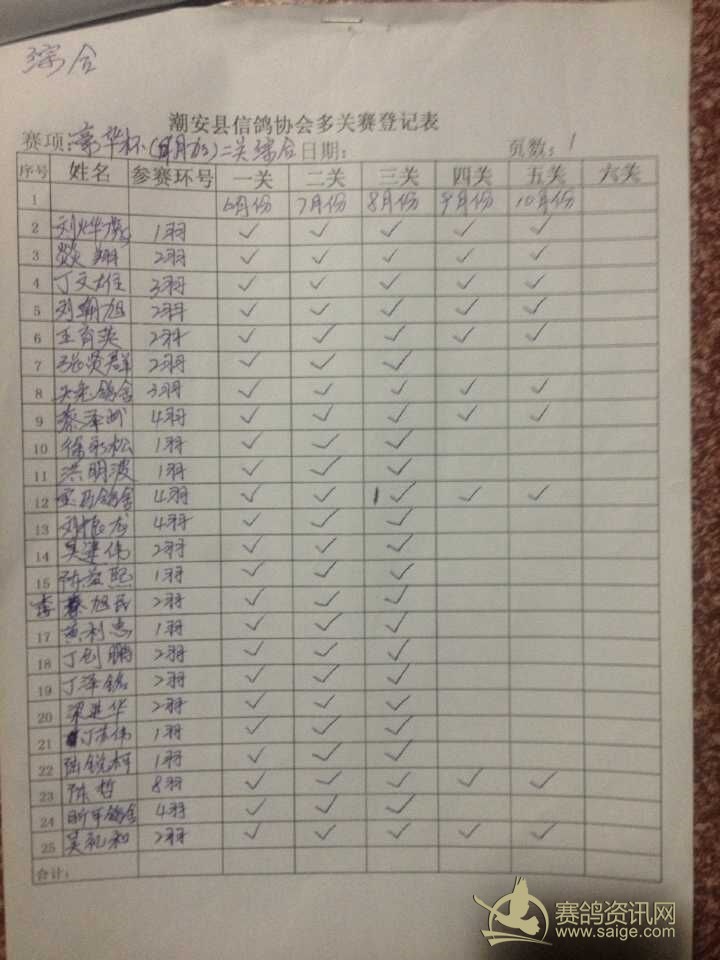 综合
潮安县信鸽协会多关赛登记表
赛项: 华杯( 月 )二关综合 日期: 页数: 1
序号 姓名 参赛环号 一关 二关 三关 四关 五关 六关
1 6月份 7月份 8月份 9月份 10月份
2 刘烨 1羽 ✓ ✓ ✓ ✓ ✓
3 翔 2羽 ✓ ✓ ✓ ✓ ✓
4 丁文雄 3羽 ✓ ✓ ✓ ✓ ✓
5 刘朝旭 2羽 ✓ ✓ ✓ ✓ ✓
6 王育英 2羽 ✓ ✓ ✓ ✓ ✓
7 张贤群 2羽 ✓ ✓ ✓
8 鸽舍 3羽 ✓ ✓ ✓ ✓ ✓
9 蔡泽 4羽 ✓ ✓ ✓ ✓ ✓
10 徐永松 1羽 ✓ ✓ ✓
11 洪明波 1羽 ✓ ✓ ✓
12 鸽舍 4羽 ✓ ✓ 1 ✓ ✓ ✓
13 刘 龙 4羽 ✓ ✓ ✓
14 吴 伟 2羽 ✓ ✓ ✓
15 陈 熙 1羽 ✓ ✓ ✓
李 旭民 2羽 ✓ ✓ ✓
17 黄利忠 1羽 ✓ ✓ ✓
18 丁创鹏 2羽 ✓ ✓ ✓
19 丁泽铭 2羽 ✓ ✓ ✓
20 梁进华 2羽 ✓ ✓ ✓
21 丁 伟 1羽 ✓ ✓ ✓
22 陆锐柯 1羽 ✓ ✓ ✓
23 陈哲 8羽 ✓ ✓ ✓ ✓ ✓
24 鸽舍 4羽 ✓ ✓ ✓
25 吴礼和 2羽 ✓ ✓ ✓ ✓ ✓
合计:
赛鸽资讯网
www.saige.com